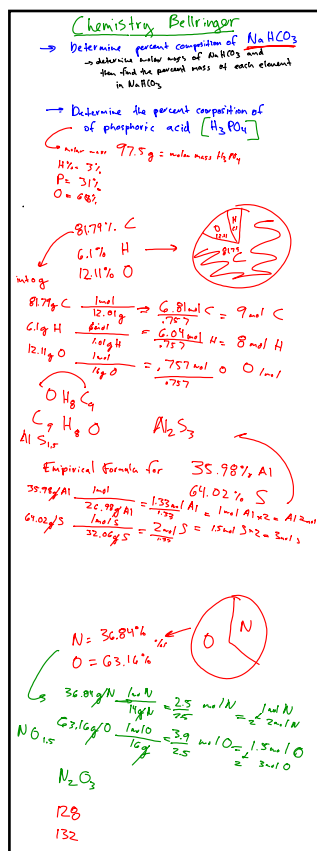 Chemistry Bellringer
→ Determine percent composition of NaHCO3
→ determine molar mass of NaHCO3 and
then find the percent mass of each element
in NaHCO3
→ Determine the percent composition of
of phosphoric acid [H3PO4]
molar mass 97.5g = molar mass H3PO4
H% = 3%
P = 31%
O =
81.79% C
6.1% H →
12.11% O
O 12.11 H 6.1
81.79 C
into g
81.79g C 1mol / 12.01g = 6.81mol C / .757 = 9mol C
6.1g H 1mol / 1.01g H = 6.04mol H / .757 = 8mol H
12.11g O 1mol / 16g O = .757mol O / .757 O 1mol
O H8 C9
C9 H8 O
Al S1.5
Al2S3
Empirical Formula for 35.98% Al
64.02% S
35.98g Al 1mol / 26.98g Al = 1.33mol Al / 1.33 = 1mol Al x2 = Al 2mol
64.02g S 1mol S / 32.06g S = 2mol S / 1.33 = 1.5mol S x2 = 3mol S
N = 36.84%
O = 63.16%
O N
36.84g N 1mol N / 14g N = 2.5 mol N / 2.5 = 1mol N 2mol N
NO1.5 63.16g O 1mol O / 16g = 3.9 mol O / 2.5 = 1.5mol O 3mol O
N2O3
128
132